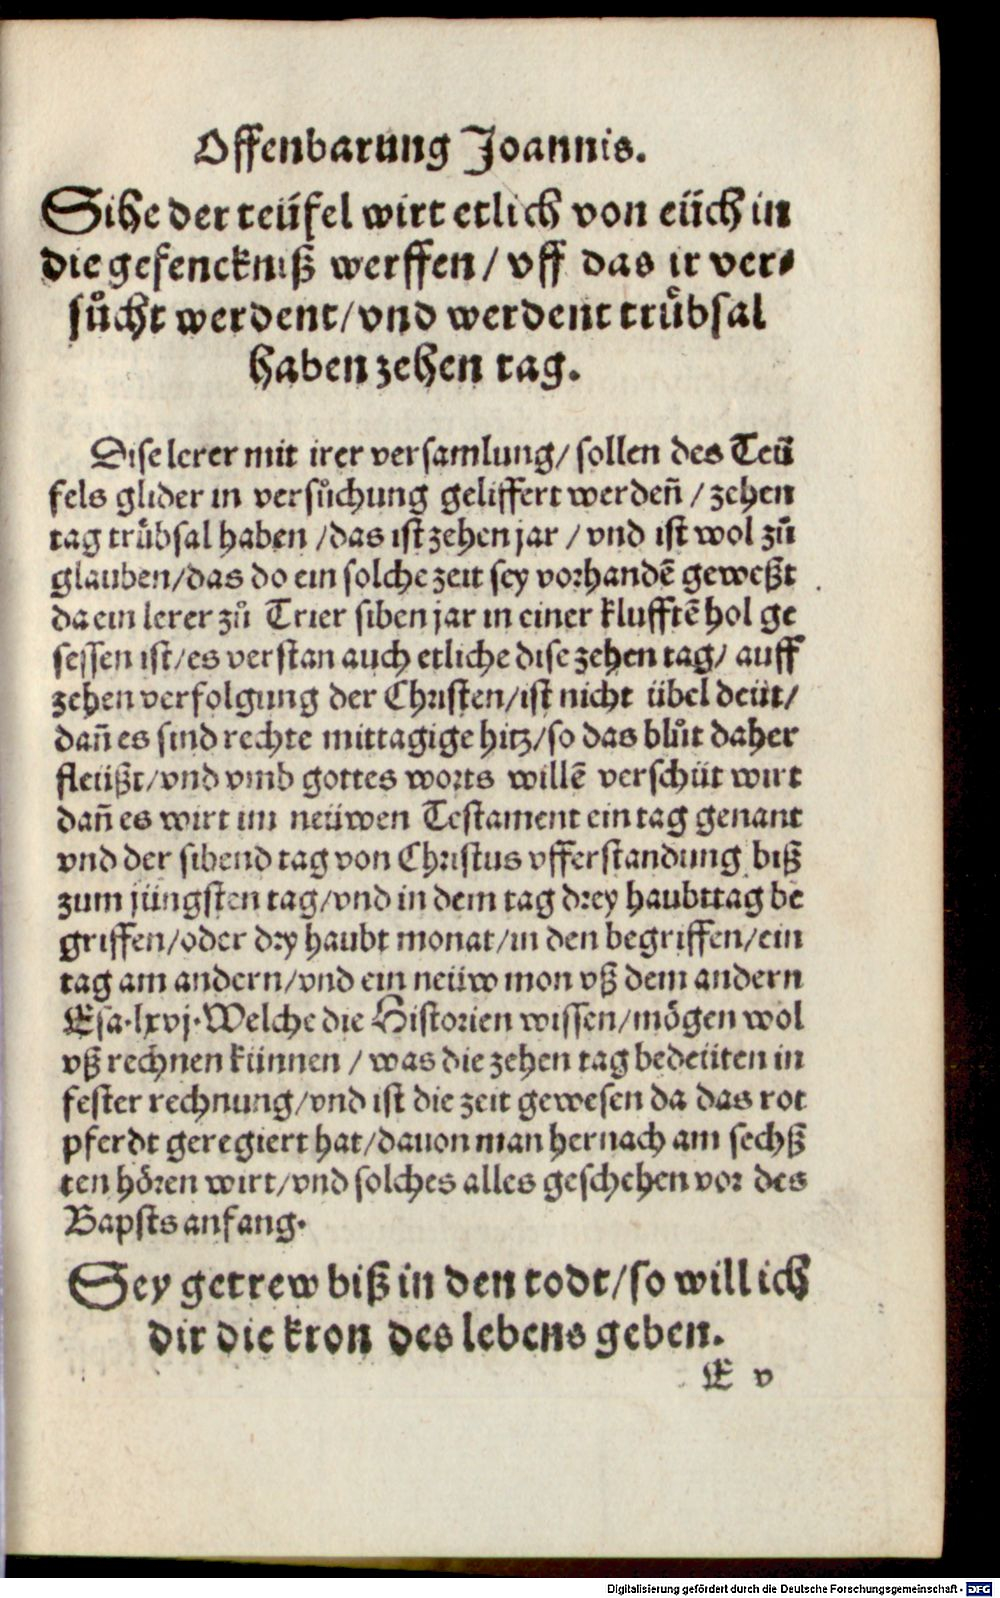 Offenbarung Joannis.
Sihe der teüfel wirt etlich von eüch in
die gefenckniß werffen / vff das ir ver⸗
sůcht werdent / vnd werdent trůbsal
haben zehen tag.
Dise lerer mit irer versamlung / sollen des Teü
fels glider in versůchung geliffert werdeñ / zehen
tag trůbsal haben / das ist zehen jar / vnd ist wol zů
glauben / das do ein solche zeit sey vorhandẽ geweßt
da ein lerer zů Trier siben jar in einer klufftẽ hol ge
sessen ist / es verstan auch etliche dise zehen tag / auff
zehen verfolgung der Christen / ist nicht übel deüt /
dañ es sind rechte mittagige hitz / so das blůt daher
fleüßt / vnd vmb gottes worts willẽ verschüt wirt
dañ es wirt im neüwen Testament ein tag genant
vnd der sibend tag von Christus vfferstandung biß
zum jüngsten tag / vnd in dem tag drey haubttag be
griffen / oder dry haubt monat / in den begriffen / ein
tag am andern / vnd ein neüw mon vß dem andern
Esa. lxvj. Welche die Historien wissen / mögen wol
vß rechnen künnen / was die zehen tag bedeüten in
fester rechnung / vnd ist die zeit gewesen da das rot
pferdt geregiert hat / dauon man hernach am sechß
ten hören wirt / vnd solches alles geschehen vor des
Bapsts anfang.
Sey getrew biß in den todt / so will ich
dir die kron des lebens geben.
E v
Digitalisierung gefördert durch die Deutsche Forschungsgemeinschaft - DFG